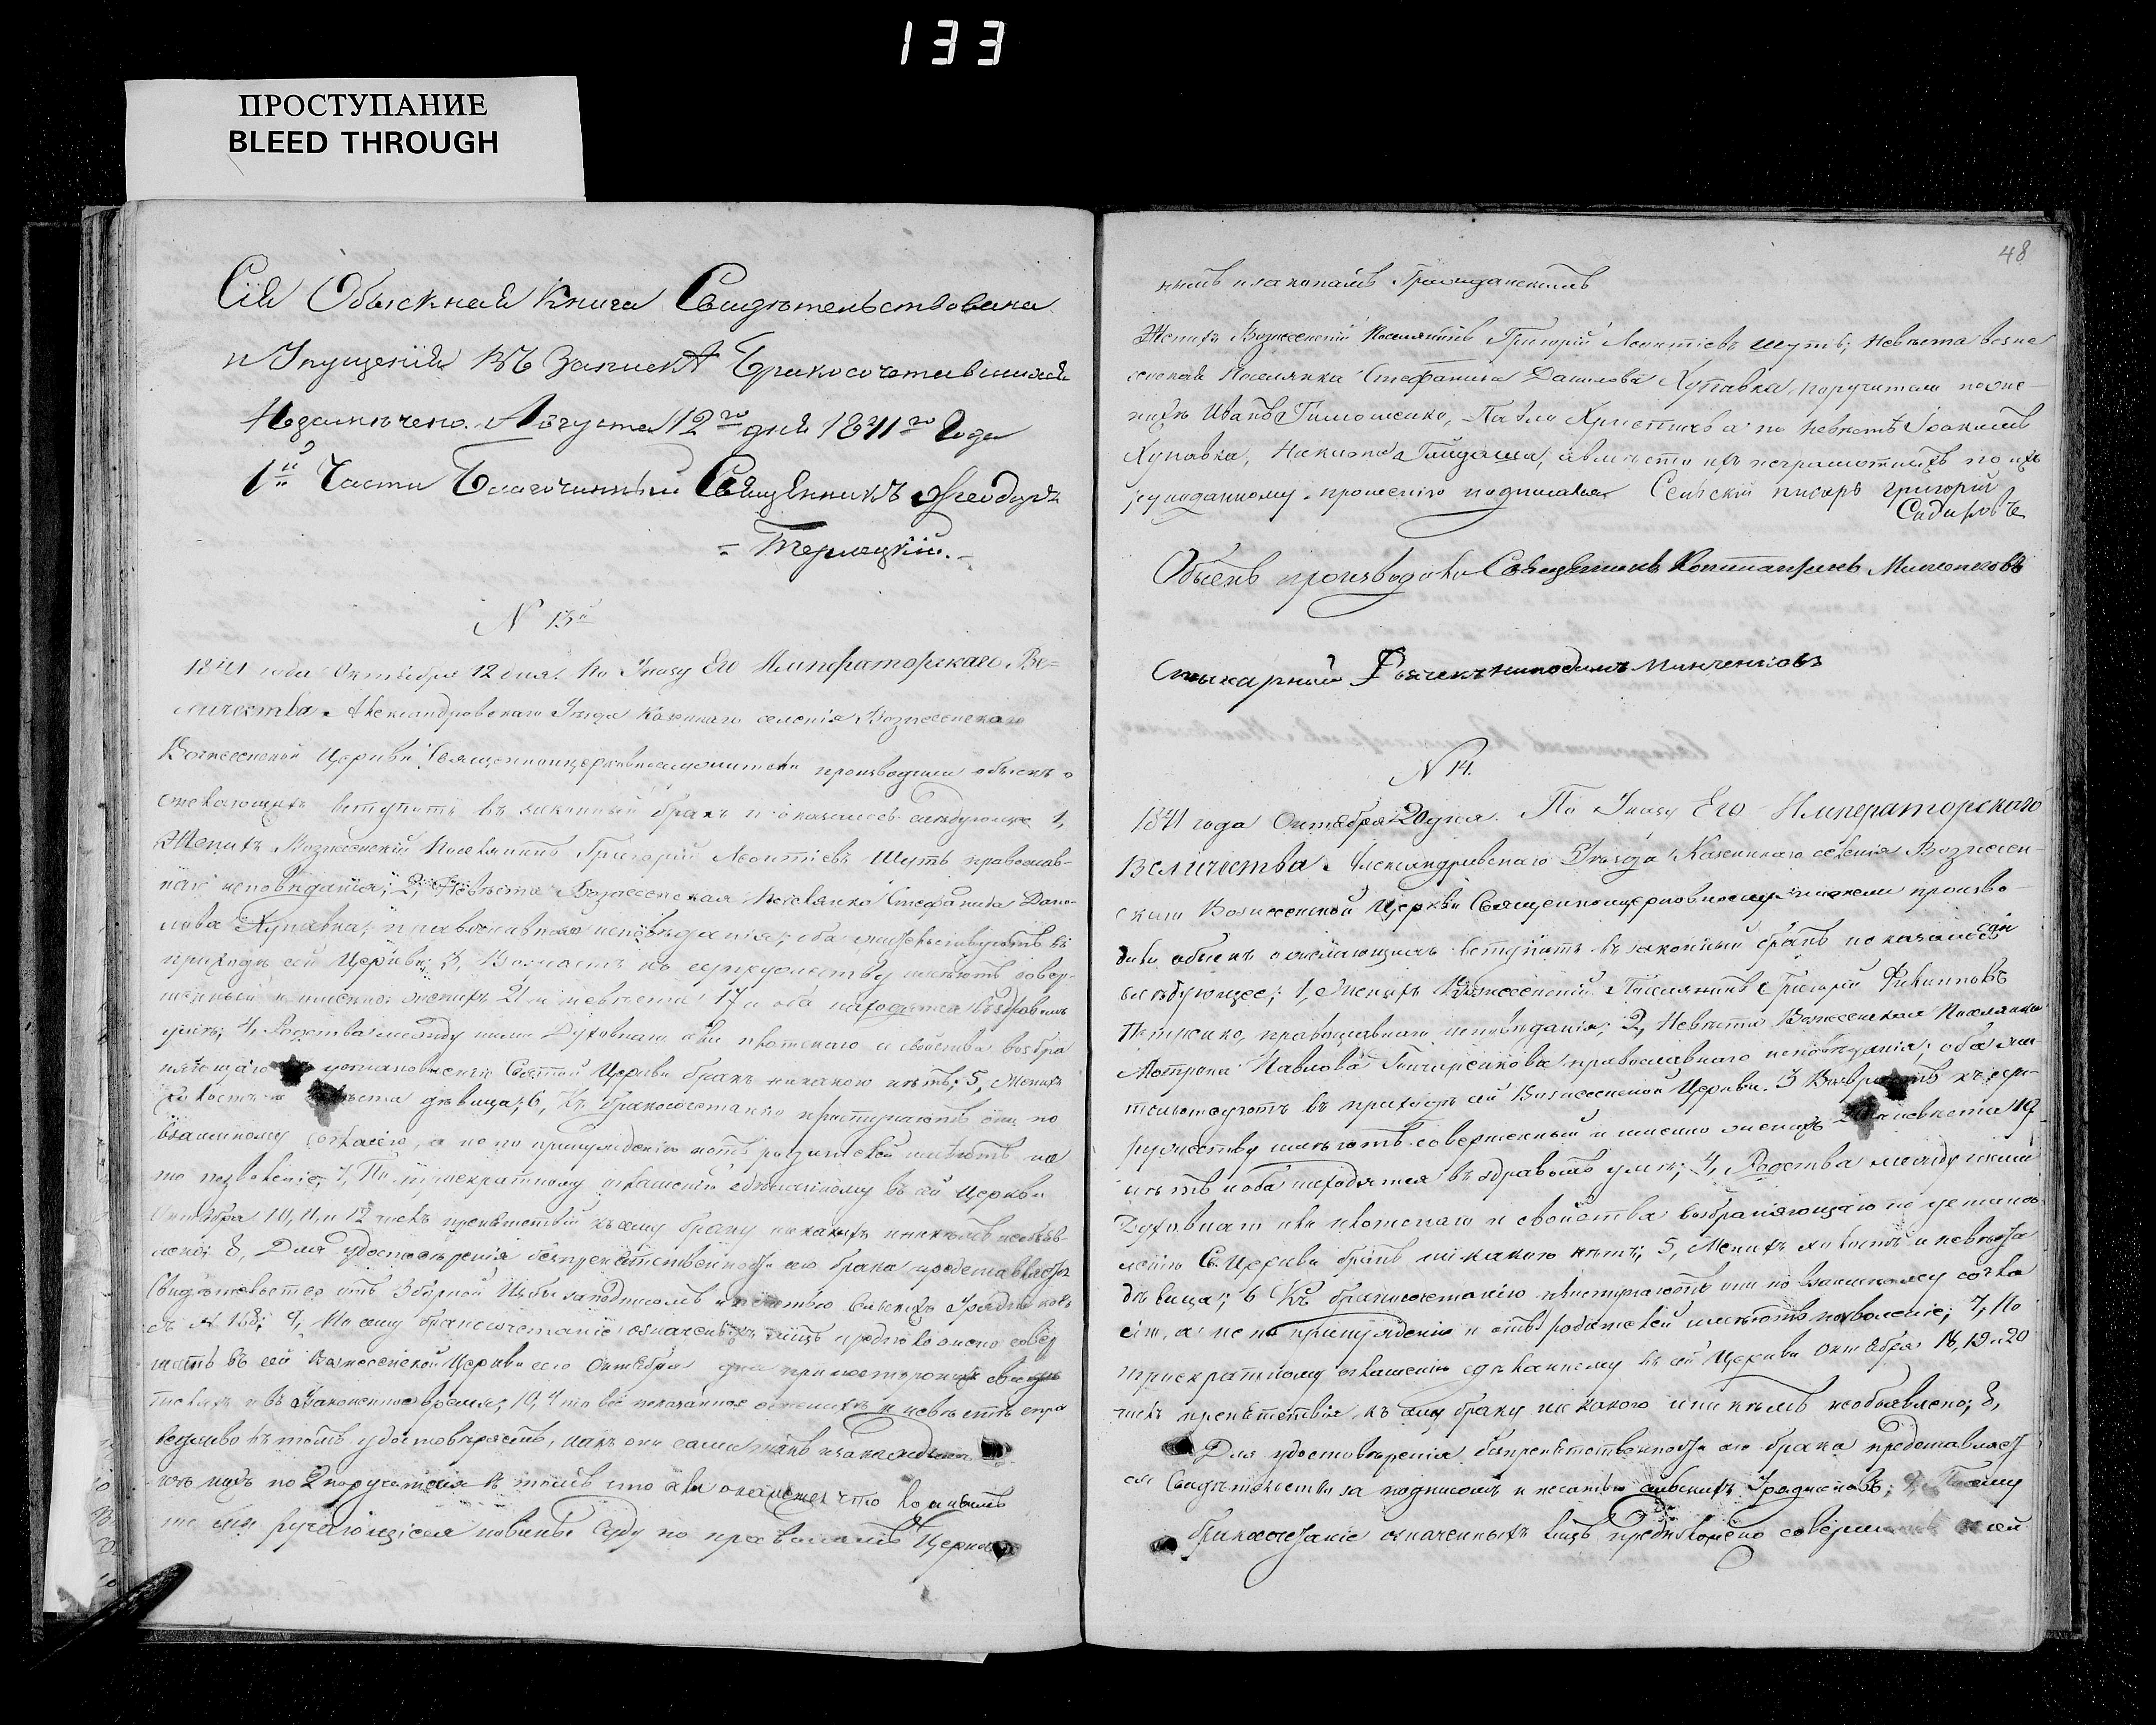 133
ПРОСТУПАНИЕ
BLEED THROUGH
Сія Обыскная Книга Свидѣтельствована
и Упущенія въ Запискѣ Бракосочетавшихся
Незамѣчено. Августа 12го дня 1841го Года
1й Части Благочинный Священникъ Ѳеодоръ
= Терлецкій. =
N 13й
1841 года Октября 12 дня. По Указу Его Императорскаго Ве=
личества Александровскаго Уѣзда Казеннаго селенія Вознесенскаго
Вознесенской Церкви Священноцерковнослужители производили обыскъ о
желающихъ вступить въ законный бракъ и оказалось слѣдующее 1,
Женихъ Вознесенскій Поселянинъ Григорій Леонтіевъ Шуть православ-
наго исповѣданія; 2, Невѣста Вознесенская Поселянка Стефанида Дани-
лова Хупавка, православнаго исповѣданія; оба жительствуютъ въ
приходѣ сей Церкви; 3, Возрастъ къ супружеству имѣютъ совер-
шенный и именно женихъ 21 и невѣста 17 и оба находятся въ здравомъ
умѣ; 4, Родства между ними Духовнаго или плотскаго и свойства возбра
няющаго установленія Святой Церкви бракъ никакого нѣтъ; 5, Женихъ
холостъ а невѣста дѣвица; 6, Къ бракосочетанію приступаютъ они по
взаимному согласію, а не по принужденію и отъ родителей имѣютъ на
то позволеніе; 7, По троекратному оглашенію сдѣланному въ сей Церкви
Октября 10, 11, и 12 числъ препятствій къ сему браку никакихъ никѣмъ необъяв-
лено; 8, Для удостовѣренія безпрепятственности сего брака представляется
Свидѣтельство отъ Зборной Избы за подписомъ и печатью сельскихъ
9, По сему бракосочетаніе означенныхъ лицъ предположено совер
шить въ сей Вознесенской Церкви сего Октября дня при постороннихъ свидѣ
теляхъ и въ Узаконенное время; 10, Что всё показанное о женихѣ и невѣстѣ спра
ведливо въ томъ удостовѣряютъ, какъ они сами такъ и
по 2 поручителя въ томъ что если окажется что ложнымъ
то ручающіеся повинны Суду по правиламъ Церков
48
нымъ и законамъ Гражданскимъ
Женихъ Вознесенскій Поселянинъ Григорій Леонтіевъ Шуть; Невѣста Возне
сенская Поселянка Стефанида Данилова Хупавка, поручители по же-
нихѣ Иванъ Тимошенко, Павло по невѣстѣ Іоакимъ
Хупавка, Гайдаша; а вмѣсто ихъ неграмотныхъ по ихъ
рукоданному прошенію подписался Сельскій писарь Григорій
Обыскъ производили Священникъ Константинъ Минченковъ
Стихарный Дьячекъ Никодимъ Минченковъ
N 14.
1841 года Октября 20 дня. По Указу Его Императорскаго
Величества Александровскаго Уѣзда Казеннаго селенія Вознесен-
скаго Вознесенской Церкви Священноцерковнослужители произво-
дили обыскъ о желающихъ вступить въ законный бракъ и оказалось
слѣдующее; 1, Женихъ Вознесенскій Поселянинъ Григорій Филиповъ
православнаго исповѣданія; 2, Невѣста Вознесенская Поселянка
Мотрона Павлова Гончаренкова православнаго исповѣданія; оба жи
тельствуютъ въ приходѣ сей Вознесенской Церкви. 3 Возрастъ къ супру-
ружеству имѣютъ совершенный и именно женихъ и невѣста 19
лѣтъ и оба находятся въ здравомъ умѣ; 4, Родства между ними
Духовнаго или плотскаго и свойства возбраняющаго по установ
ленію Св. Церкви бракъ никакого нѣтъ; 5, Женихъ холостъ и невѣста
дѣвица; 6 Къ бракосочетанію приступаютъ они по взаимному согла
сію, а не по принужденію и отъ родителей имѣютъ позволеніе; 7, По
троекратному оглашенію сдѣланному въ сей Церкви Октября 18, 19 и 20
числъ препятствія къ сему браку никакого и никѣмъ необъявлено; 8,
Для удостовѣренія безпрепятственности сего брака представляет
ся Свидѣтельство за подписомъ и печатью сельскихъ; 9, По сему
бракосочетаніе означенныхъ лицъ предположено совершить въ сей